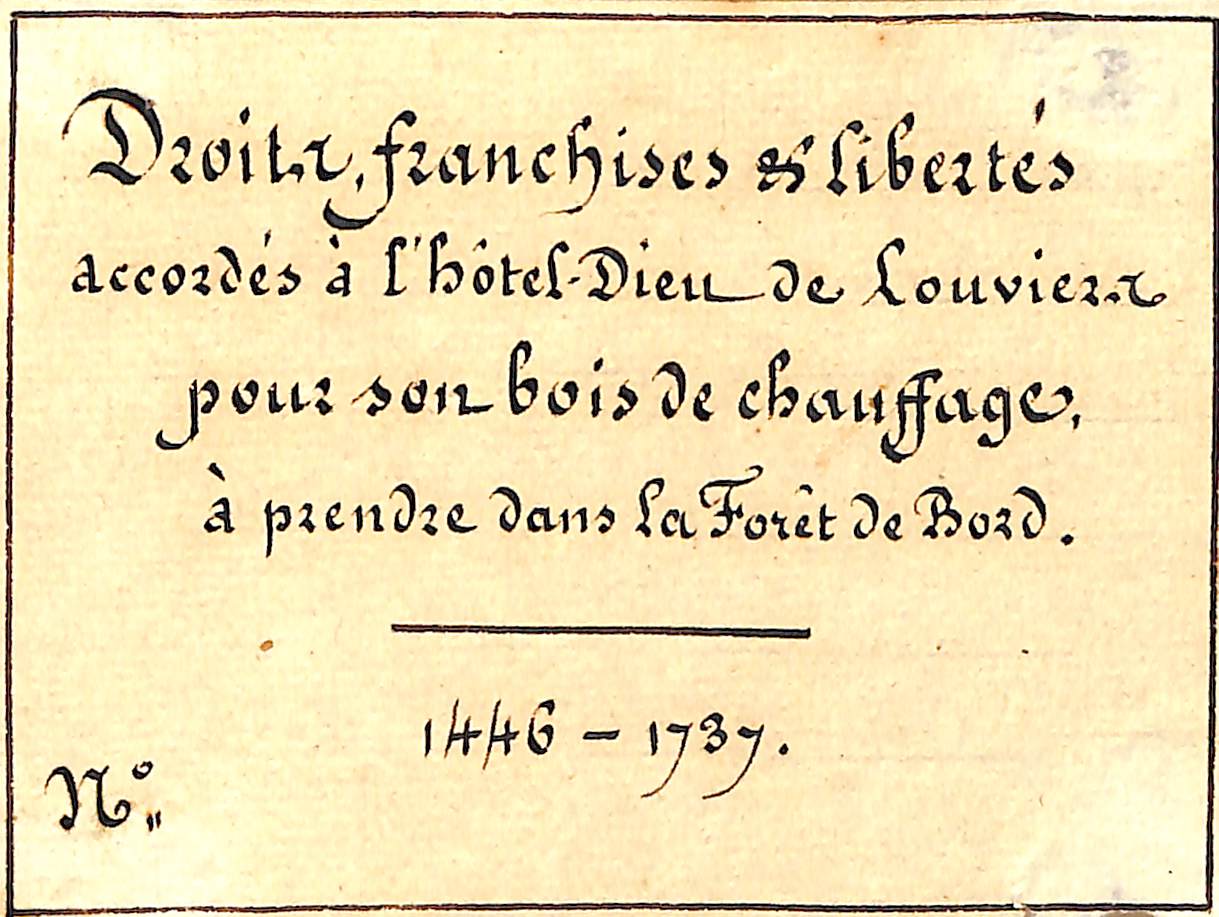 Droits, franchises & libertés
accordés à l'hôtel-Dieu de Louviers
pour son bois de chauffage,
à prendre dans la Forêt de Bord.
1446 - 1737.
N° "